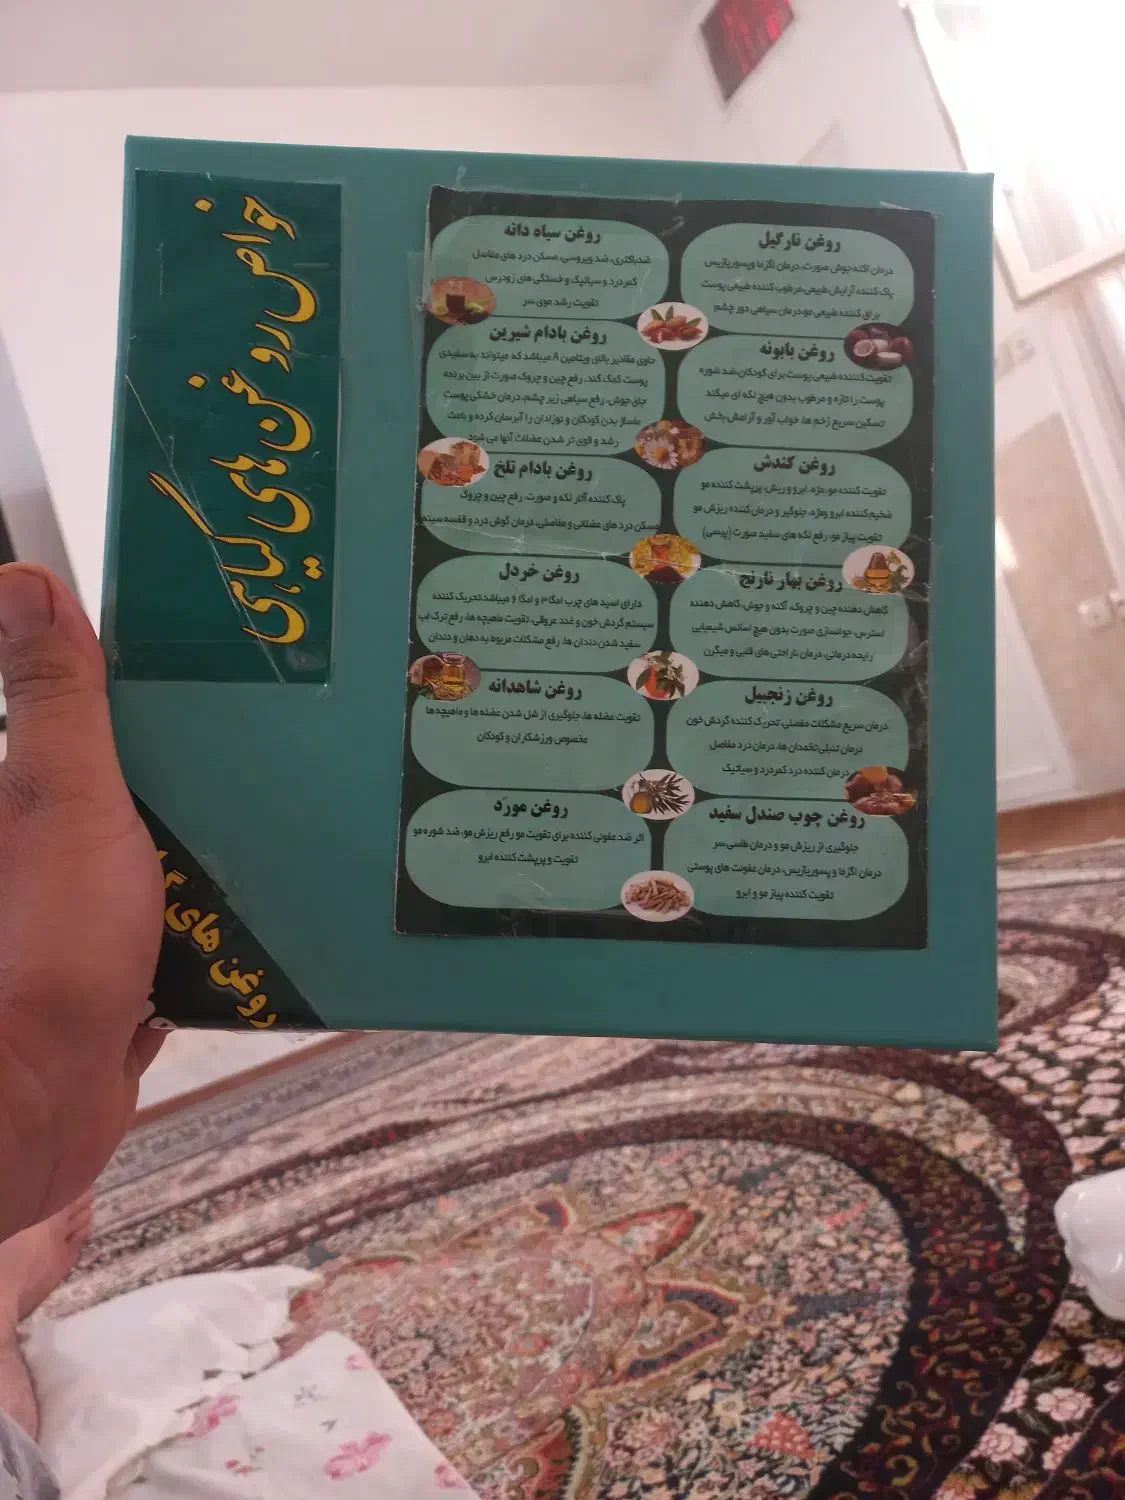 خواص روغن های گیاهی
روغن نارگیل
درمان اکنه جوش صورت، درمان اگزما وپسوریازیس
پاک کننده آرایش طبیعی،مرطوب کننده طبیعی پوست
براق کننده طبیعی مو،درمان سیاهی دور چشم
روغن سیاه دانه
ضدباکتری، ضد ویروسی، مسکن درد های مفاصل
کمردرد و سیاتیک و خستگی های زودرس
تقویت رشد موی سر
روغن بابونه
تقویت کننده طبیعی پوست برای کودکان،ضد شوره
پوست را تازه و مرطوب بدون هیچ لکه ای میکند
تسکین سریع زخم ها، خواب آور و آرامش بخش
روغن بادام شیرین
حاوی مقادیر بالای ویتامین A میباشد که میتواند به سفیدی
پوست کمک کند، رفع چین و چروک صورت از بین برنده
جای جوش، رفع سیاهی زیر چشم، درمان خشکی پوست
ماساژ بدن کودکان و نوزادان را آبرسان کرده و باعث
رشد و قوی تر شدن عضلات آنها می شود
روغن کندش
تقویت کننده مو،مژه، ابرو و ریش، پرپشت کننده مو
ضخیم کننده ابرو ومژه، جلوگیر و درمان کننده ریزش مو
تقویت پیاز مو، رفع لکه های سفید صورت (پیسی)
روغن بادام تلخ
پاک کننده آثار لکه و صورت، رفع چین و چروک
مسکن درد های عضلانی و مفاصلی، درمان گوش درد و قفسه سینه
روغن بهار نارنج
کاهش دهنده چین و چروک، آکنه و جوش، کاهش دهنده
استرس، جوانسازی صورت بدون هیچ اسانس شیمیایی
رایحه درمانی، درمان ناراحتی های قلبی و میگرن
روغن خردل
دارای اسید های چرب امگا۳ و امگا ۶ میباشد،تحریک کننده
سیستم گردش خون و غدد عروقی، تقویت ماهیچه ها، رفع ترک لب
سفید شدن دندان ها، رفع مشکلات مربوط به دهان و دندان
روغن زنجبیل
درمان سریع مشکلات مفصلی، تحریک کننده گردش خون
درمان تنبلی تخمدان ها، درمان درد مفاصل
درمان کننده درد کمردرد و سیاتیک
روغن شاهدانه
تقویت عضله ها، جلوگیری از شل شدن عضله ها و ماهیچه ها
مخصوص ورزشکاران و کودکان
روغن چوب صندل سفید
جلوگیری از ریزش مو و درمان طاسی سر
درمان اگزما و پسوریازیس، درمان عفونت های پوستی
تقویت کننده پیاز مو و ابرو
روغن مورَد
اثر ضد عفونی کننده برای تقویت مو رفع ریزش مو، ضد شوره مو
تقویت و پرپشت کننده ابرو
روغن های